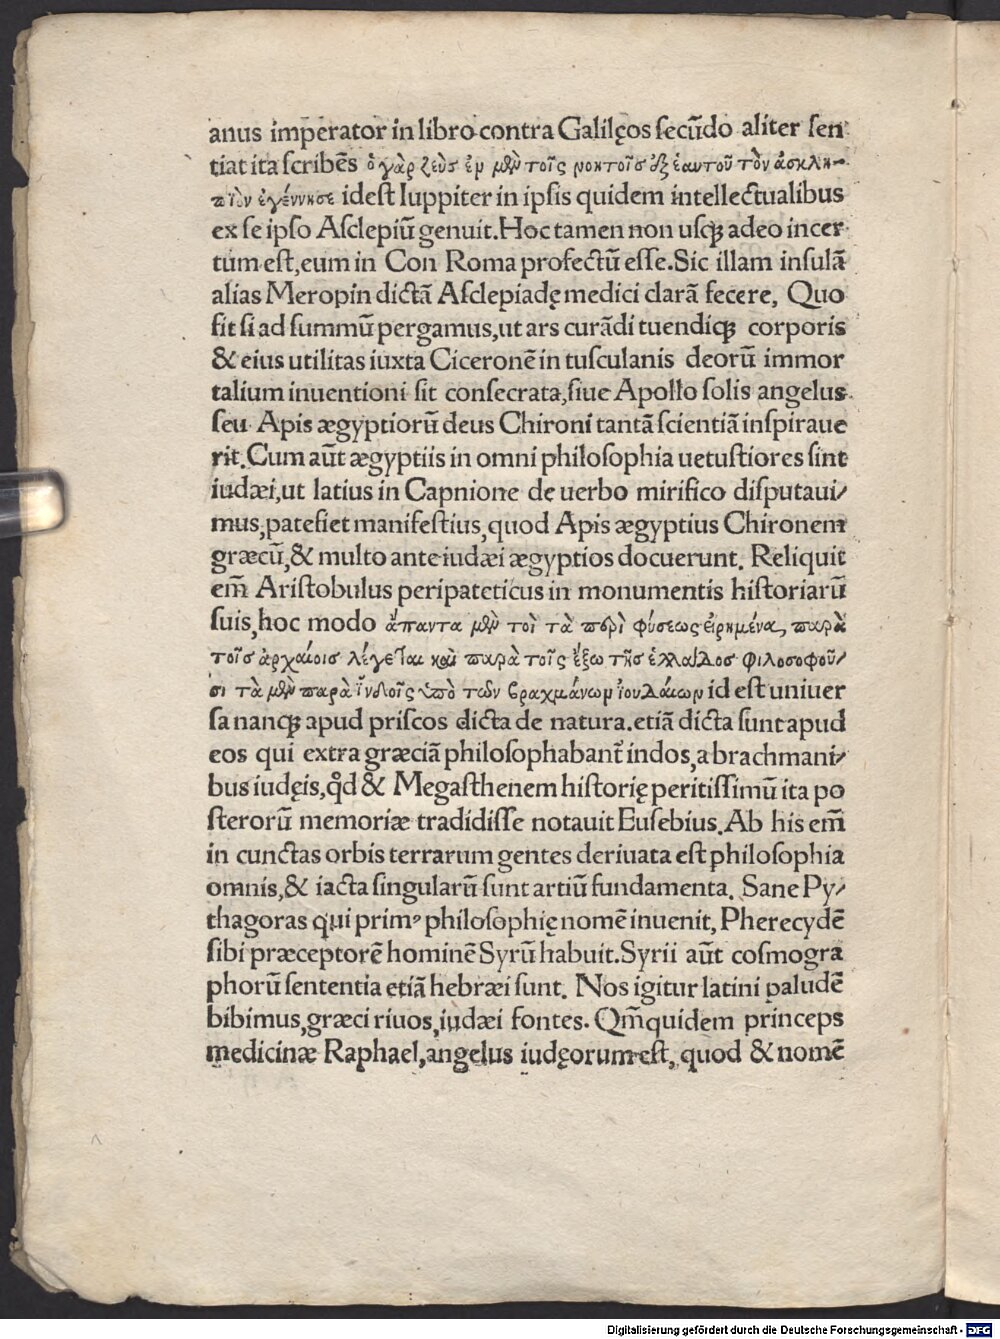 anus imperator in libro contra Galilęos secūdo aliter sen
tiat ita scribēs ὁ γὰρ ζεὺς ἐν μὲν τοῖς νοητοῖς ὀξ ἑαυτοῦ τὸν ἀσκλη-
πιὸν ἐγέννησε idest Iuppiter in ipsis quidem intellectualibus
ex se ipso Asclepiū genuit. Hoc tamen non usqꝫ adeo incer
tum est, eum in Con Roma profectū esse. Sic illam insulā
alias Meropin dictā Asclepiadę medici clarā fecere, Quo
fit si ad summū pergamus, ut ars curādi tuendiqꝫ corporis
& eius utilitas iuxta Ciceronē in tusculanis deorū immor
talium inuentioni sit consecrata, siue Apollo solis angelus
seu Apis ægyptiorū deus Chironi tantā scientiā inspiraue
rit. Cum aūt ægyptiis in omni philosophia uetustiores sint
iudæi, ut latius in Capnione de uerbo mirifico disputaui/
mus, patefiet manifestius, quod Apis ægyptius Chironem
græcū, & multo ante iudæi ægyptios docuerunt. Reliquit
em̄ Aristobulus peripateticus in monumentis historiarū
suis, hoc modo ἅπαντα μὲν τοὶ τὰ περὶ φύσεως εἰρημένα, παρὰ
τοῖς ἀρχαίοις λέγεται καὶ παρὰ τοῖς ἔξω τῆς ἑλλάδος φιλοσοφοῦ/
σι τὰ μὲν παρὰ ἰνδοῖς ὑπὸ τῶν βραχμάνων ἰουδαίων id est uniuer
sa nanqꝫ apud priscos dicta de natura. etiā dicta sunt apud
eos qui extra græciā philosophabant̄ indos, a brachmani/
bus iudęis, qd̄ & Megasthenem historię peritissimū ita po
sterorū memoriæ tradidisse notauit Eusebius. Ab his em̄
in cunctas orbis terrarum gentes deriuata est philosophia
omnis, & iacta singularū sunt artiū fundamenta. Sane Py/
thagoras qui primꝰ philosophię nomē inuenit, Pherecydē
sibi præceptorē hominē Syrū habuit. Syrii aūt cosmogra
phorū sententia etiā hebræi sunt. Nos igitur latini paludē
bibimus, græci riuos, iudæi fontes. Qm̄ quidem princeps
medicinæ Raphael, angelus iudęorum est, quod & nomē
Digitalisierung gefördert durch die Deutsche Forschungsgemeinschaft - DFG